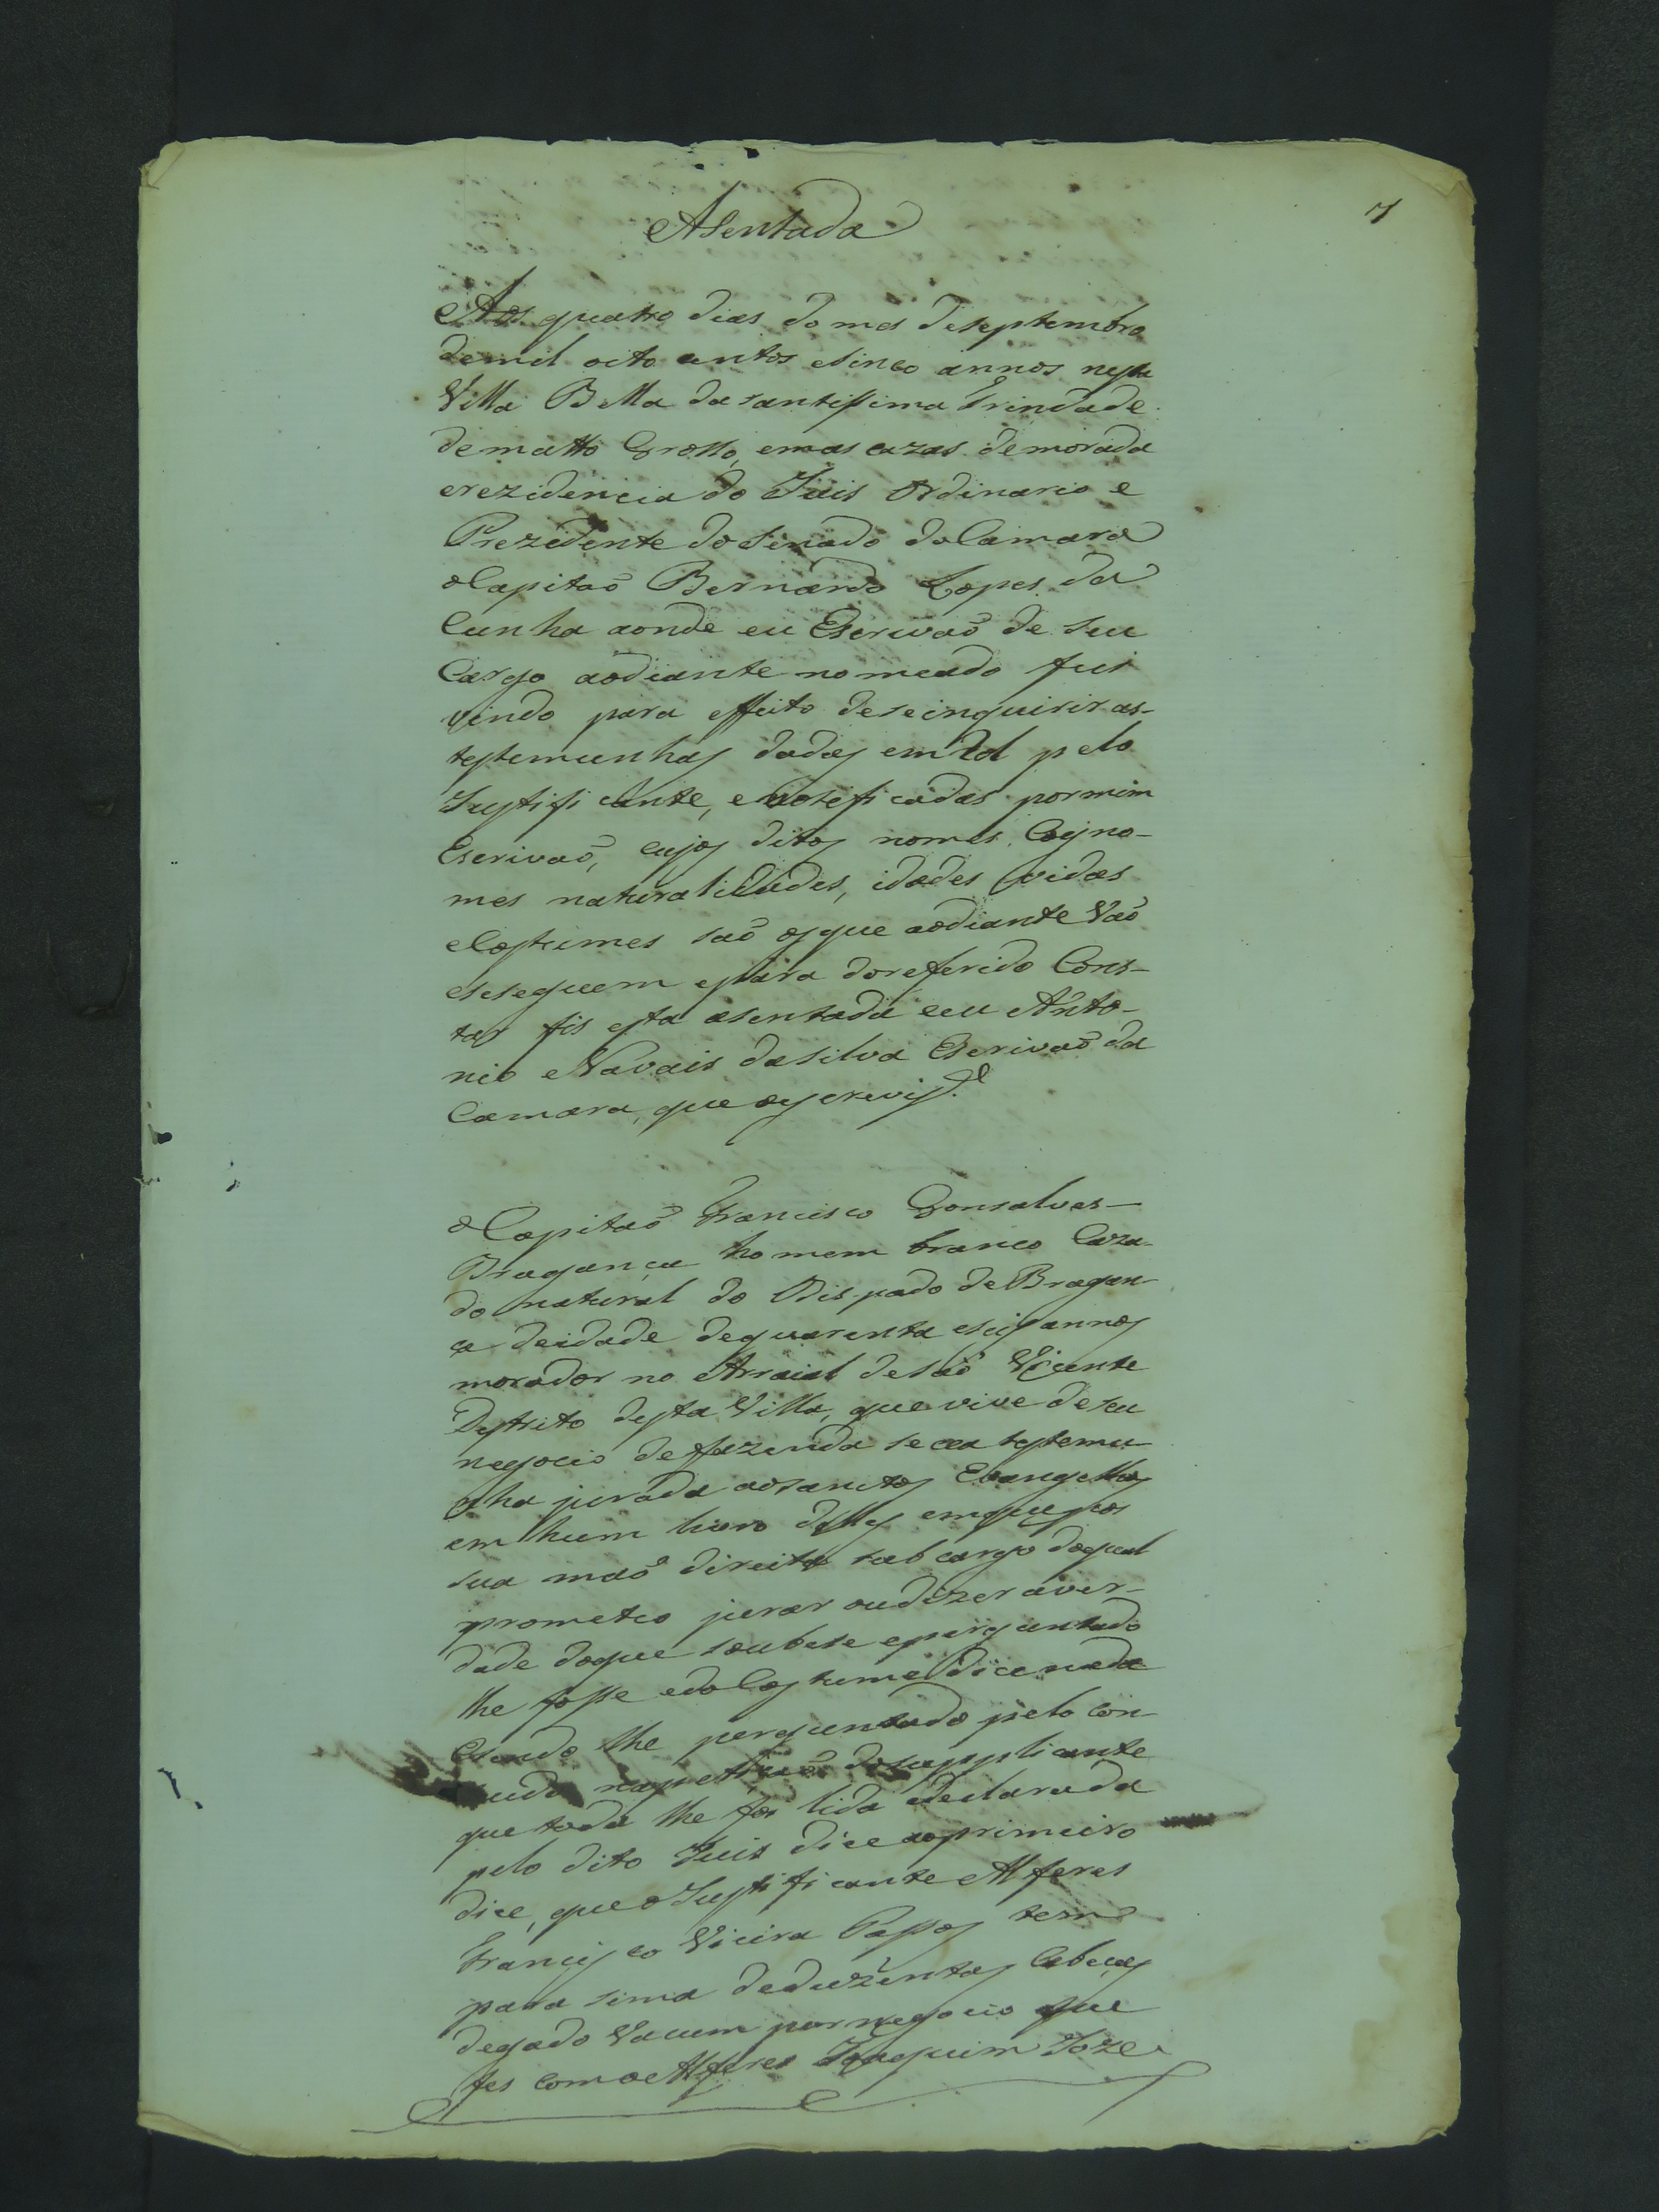 7
Asentada
Aos quatro dias do mes de septembro
de mil oito centos e sinco annos nesta
Villa Bella da santissima Trindade
de matto Grosso, em as cazas de morada
e rezidencia do Juis Ordinario e
Prezidente do Senado da Camara
o Capitaõ Bernardo Lopes da
Cunha aonde eu Escrivaõ de seu
Cargo aodiante nomeado fui
vindo para effeito de se inquirir as
testemunhas dadas em rol pelo
Justificante, e notificadas por mim
Escrivaõ, cujos ditos nomes, Cogno-
mes naturalidades, idades vidas
e Costumes saõ os que aodiante Vaõ
e se seguem e para do referido Cons-
tar fis esta asentada e eu Anto-
nio Navais da silva Escrivaõ da
Camara, que o escrevi
O Capitaõ Francisco Gonsalves
Bragança homem branco Caza-
do natural do Bispado de Bragan-
ça de idade de quarenta e seis annos
morador no Arraial de saõ Vicente
Destrito desta Villa, que vive de seu
negocio de fazenda seca testemu-
nha jurada aos santos Evangelhos
em hum livro delles em que pos
sua maõ direita sub cargo do qual
prometeo jurar ou dizer a ver-
dade do que soubese e perguntado
lhe fosse e do Costume dice nada
E sendo lhe perguntado pelo con-
teudo na petiçaõ do suppliante
que toda lhe foi lida e declarada
pelo dito Juis dice ao primeiro
dice, que o Justificante Alferes
Francisco Vieira Passos tem
para sima de duzentas Cabeças
de gado Vacum por negocio que
fes com o Alferes Joaquim Joze